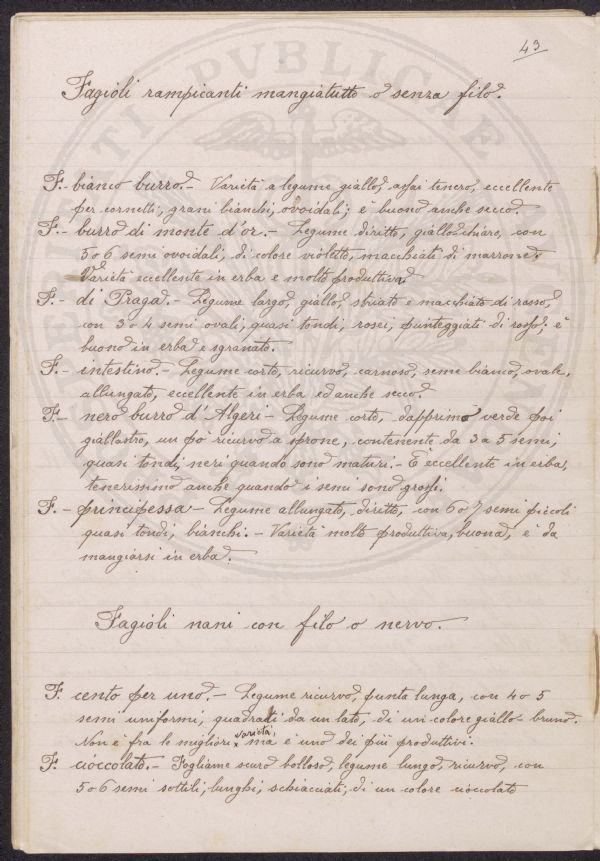 43
Fagioli rampicanti mangiatutto o senza filo.
F.- bianco burro. - Varietà a legume giallo, assai tenero, eccellente
per cornetti, grani bianchi, ovoidali; è buono anche secco.
F.- burro di monte d'or. - Legume diritto, giallo-chiaro, con
5 o 6 semi ovoidali, di colore violetto, macchiati di marrone.
Varietà eccellente in erba e molto produttiva.
F.- di Praga. - Legume largo, giallo, striato e macchiato di rosso,
con 3 o 4 semi ovali, quasi tondi, rosei, punteggiati di rosso; è
buono in erba e sgranato.
F.- intestino. - Legume corto, ricurvo, carnoso, seme bianco, ovale,
allungato, eccellente in erba ed anche secco.
F.- nero burro d'Algeri - Legume corto, dapprima verde poi
giallastro, un pò ricurvo a sprone, contenente da 3 a 5 semi,
quasi tondi, neri quando sono maturi. - È eccellente in erba,
tenerissimo anche quando i semi sono grossi.
F.- principessa - Legume allungato, diritto, con 6 o 7 semi piccoli
quasi tondi, bianchi. - Varietà molto produttiva, buona, è da
mangiarsi in erba.
Fagioli nani con filo o nervo.
F. cento per uno. - Legume ricurvo, punta lunga, con 4 o 5
semi uniformi, quadrati da un lato, di un colore giallo-bruno.
Non è fra le migliori varietà, ma è uno dei più produttivi.
F. cioccolato. - Fogliame scuro bolloso, legume lungo, ricurvo, con
5 o 6 semi sottili, lunghi, schiacciati, di un colore cioccolato